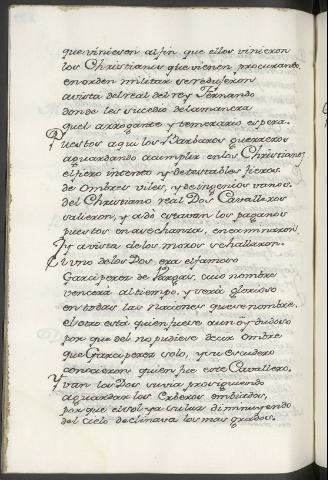 que viniesen al fin que ellos vinieron
los Christianos que vienen procurando,
en orden militar se reduseron
a vista del real del rey Fernando
donde les sucedio de la manera
quel arrogante y temerario espera.
Puestos aqui los Barbaros guerreros
aguardando a cumplir en los Christianos
el fiero intento y detestables fieros.
de ombres viles, y de ingenios vanos.
del Christiano real Dos Cavalleros
salieron, y a dó estavan los paganos
puestos en asechanza, encaminaron.
y a vista de los moros se hallaron.
El uno de los Dos era el famoso
Garci perez de Vargas, cuio nombre
vencerá al tiempo, y verá glorioso
en todas las naciones que se nombre.
el otro está quien fuese aun oy dudoso
por que del no pudieve decir ombre
que Garci perez solo, y su escudero
conocieron quien fue este Cavallero,
Yvan los Dos su via prosiguiendo
a guardar los erberos embiados,
por que el sol ya su luz diminuyendo
del cielo declinava los mas grados.